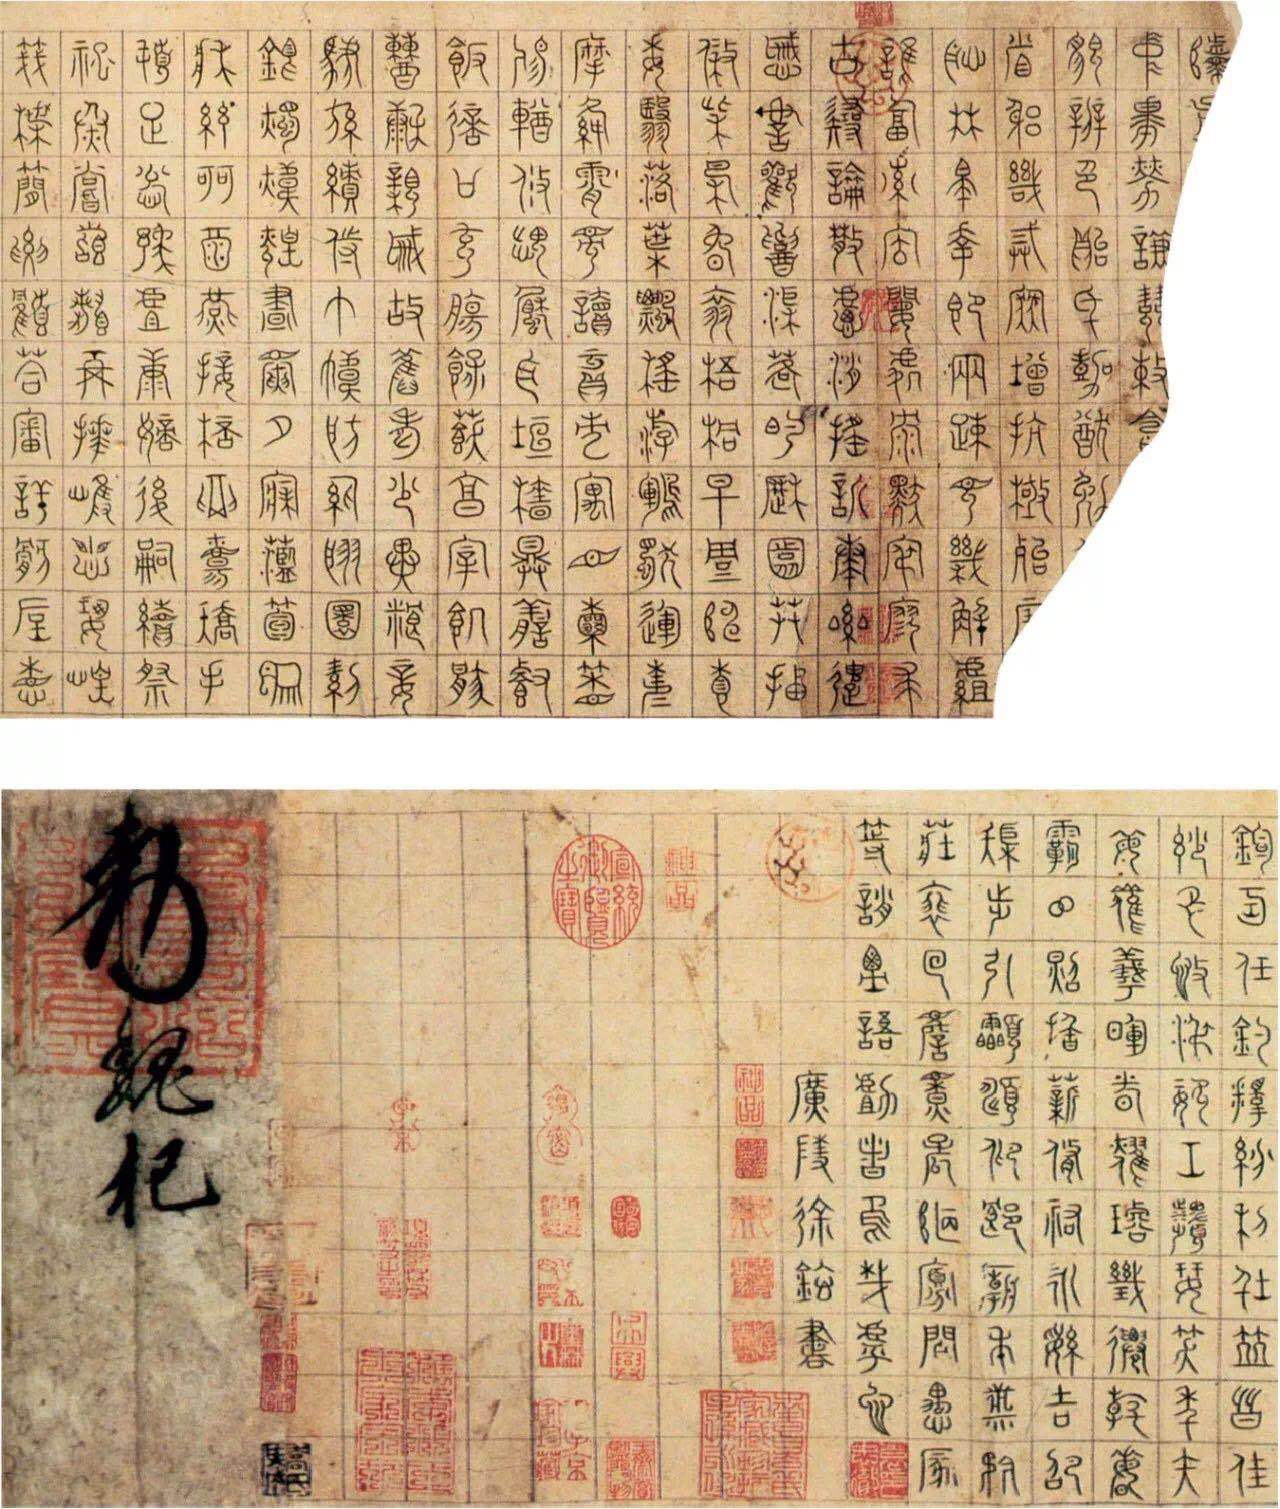 中庸勞謙謹敕
貌辨色貽厥嘉猷勉
省躬譏誡寵增抗極殆辱
恥林皋幸即兩疏見機解組
誰逼索居閒處沉默寂寥求
古尋論散慮逍遙欣奏累遣
慼謝歡招渠荷的歷園莽抽
條枇杷晚翠梧桐早凋陳根
委翳落葉飄颻游鵾獨運凌
摩絳霄耽讀翫市寓目囊箱
易輶攸畏屬耳垣牆具膳餐
飯適口充腸飽飫烹宰飢厭
糟糠親戚故舊老少異糧妾
御績紡侍巾帷房紈扇圓潔
銀燭煒煌晝眠夕寐藍筍象
床弦歌酒讌接杯舉觴矯手
頓足悅豫且康嫡後嗣續祭
祀烝嘗稽顙再拜悚懼恐惶
牋牒簡要顧答審詳骸垢想
鈞巧任釣釋紛利俗並皆佳
妙毛施淑姿工顰妍笑年矢
每催羲暉朗耀璇璣懸斡晦
魄環照指薪修祜永綏吉劭
矩步引領俯仰廊廟束帶矜
莊徘徊瞻眺孤陋寡聞愚蒙
等誚謂語助者焉哉乎也
廣陵徐鉉書
敕
魏杞